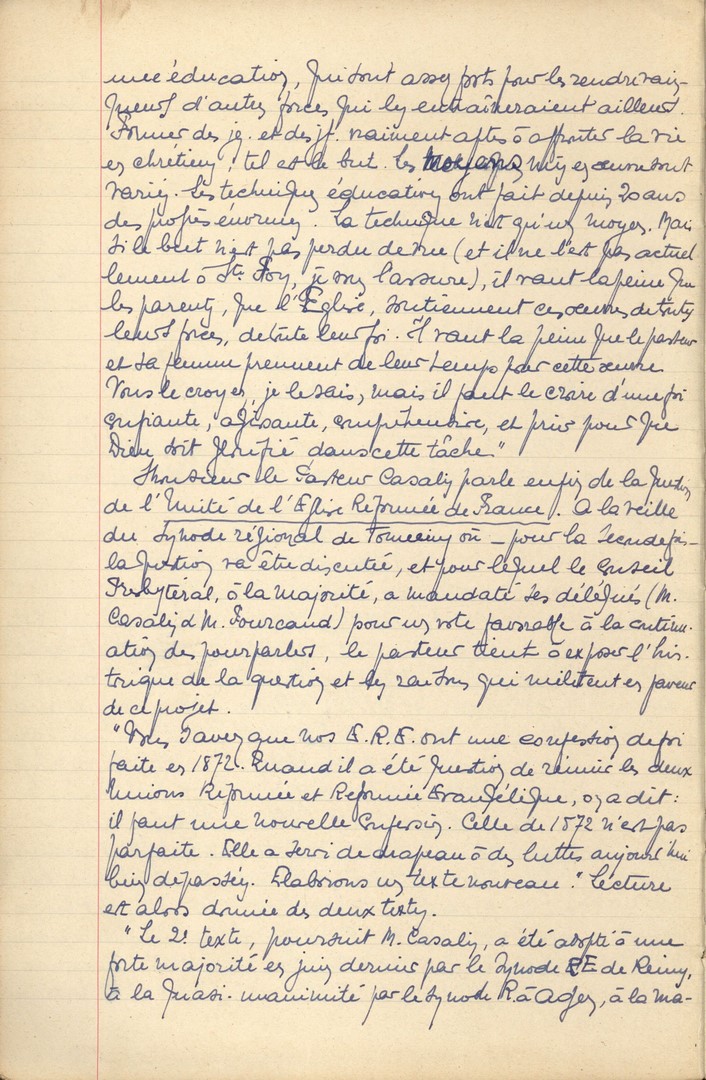 une éducation, qui sont assez forts pour les rendre vain-
queurs d'autres forces qui les entraîneraient ailleurs.
Former des jg. et des jf. vraiment aptes à affronter la vie
en chrétiens, tel est le but. Les moyens mis en œuvre sont
variés. Les techniques éducatives ont fait depuis 20 ans
des progrès énormes. La technique n'est qu'un moyen. Mais
si le but n'est pas perdu de vue (et il ne l'est pas actuel
lement à Ste Foy, je vous l'assure), il vaut la peine que
les parents, que l'Eglise, soutiennent ces œuvres de toutes
leurs forces, de toute leur foi. Il vaut la peine que le pasteur
et sa femme prennent de leur temps pour cette œuvre.
Vous le croyez, je le sais, mais il faut le croire d'une foi
confiante, agissante, compréhensive, et prier pour que
Dieu soit glorifié dans cette tâche."
Monsieur le Pasteur Casalis parle enfin de la question
de l'Unité de l'Eglise Réformée de France. A la veille
du Synode régional de Tonneins où – pour la seconde fois –
la question va être discutée, et pour lequel le Conseil
Presbytéral, à la majorité, a mandaté ses délégués (M.
Casalis & M. Fourcaud) pour un vote favorable à la continu-
ation des pourparlers, le pasteur tient à exposer l'his-
torique de la question et les raisons qui militent en faveur
de ce projet.
"Vous savez que nos E.R.E. ont une confession de foi
faite en 1872. Quand il a été question de réunir les deux
Unions Réformée et Réformée Evangélique, on a dit :
il faut une nouvelle Confession. Celle de 1872 n'est pas
parfaite. Elle a servi de drapeau à des luttes aujourd'hui
bien dépassées. Elaborons un texte nouveau." Lecture
est alors donnée des deux textes.
"Le 2e texte, poursuit M. Casalis, a été adopté à une
forte majorité en juin dernier par le Synode RE de Reims,
à la quasi-unanimité par le Synode R. à Agen, à la ma-